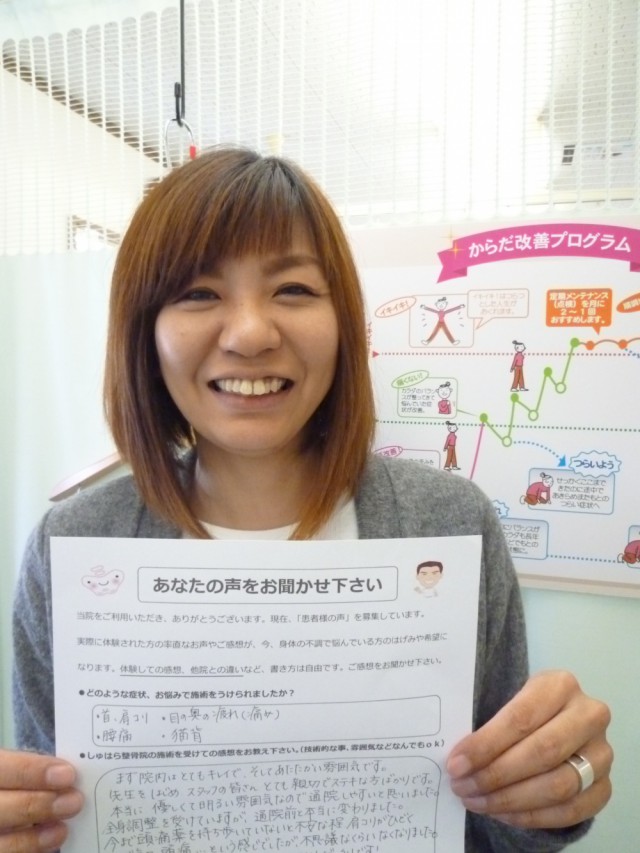 からだ改善プログラム
イキイキ!
定期メンテナンス
(点検)を月に
2~1回
おすすめします。
痛くない!
つらいよう
せっかくここまで
きたのに途中で
あきらめまたもとの
つらい症状へ
あなたの声をお聞かせ下さい
当院をご利用いただき、ありがとうございます。現在、「患者様の声」を募集しています。
実際に体験された方の率直なお声やご感想が、今、身体の不調で悩んでいる方のはげみや希望に
なります。体験しての感想、他院との違いなど、書き方は自由です。ご感想をお聞かせ下さい。
●どのような症状、お悩みで施術をうけられましたか?
・首、肩コリ ・目の奥の疲れ(痛み)
・腰痛 ・猫背
●しゅはら整骨院の施術を受けての感想をお教え下さい。(技術的な事、雰囲気などなんでもok)
まず院内はとてもキレイで、そしてあたたかい雰囲気です。
先生をはじめ スタッフの皆さん とても親切でステキな方ばかりです。
本当に 優しくて明るい雰囲気なので通院しやすいと思いました。
全身調整を受けていますが、通院前と本当に変わりました。
今まで頭痛薬を持ち歩いていないと不安な程 肩コリがひどく